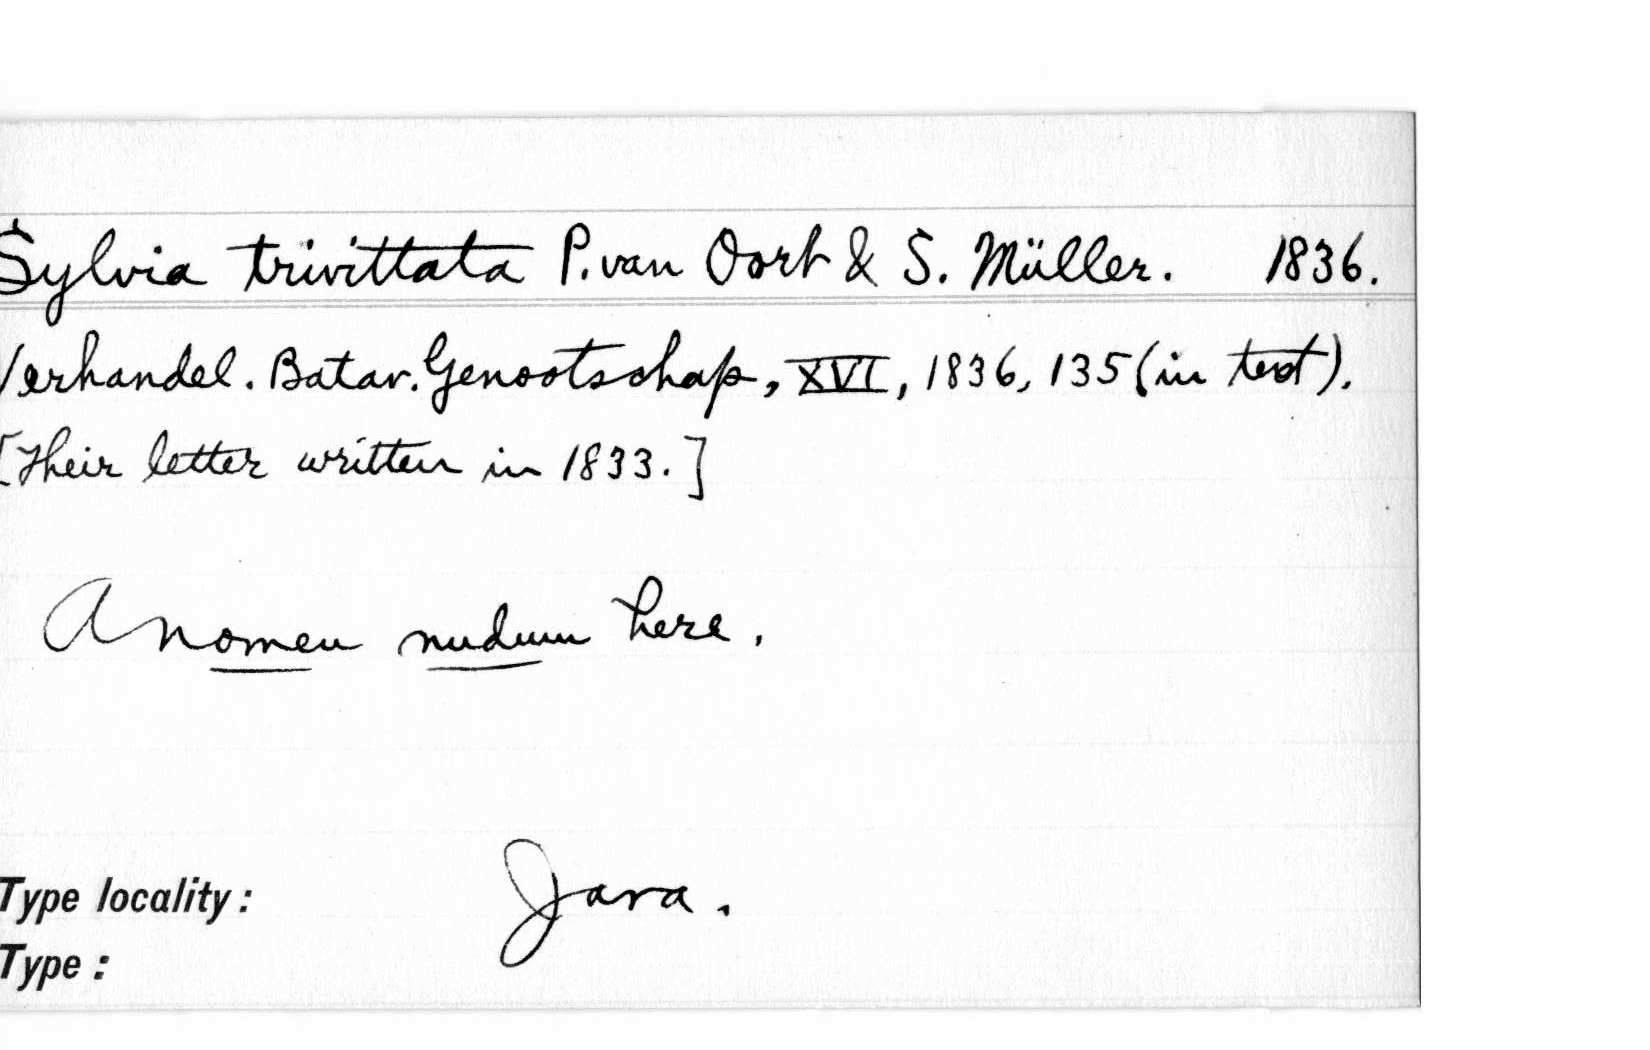 Sylvia trivittata P. van Oort & S. Müller. 1836.
Verhandel. Batav. Genootschap, XVI, 1836, 135 (in text).
[Their letter written in 1833.]
A nomen nudum here.
Type locality: Java.
Type: